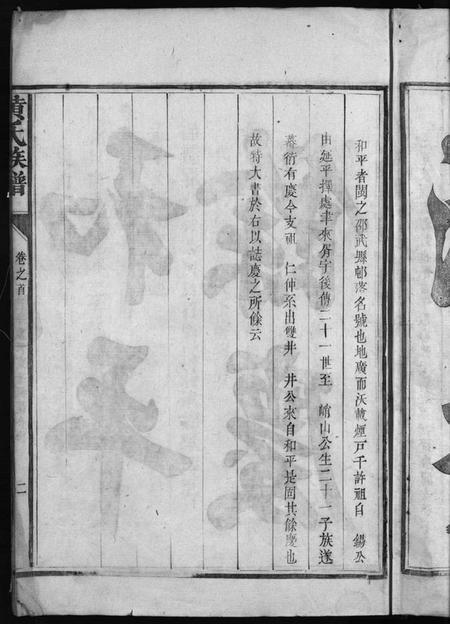 和平者閩之邵武縣邨落名號也地廣而沃數煙戶千許祖自 錫公
由延平擇處聿來胥宇後傳二十一世至 峭山公生二十一子族遂
蕃衍有慶今支祖 仁仲系出雙井 井公來自和平是固其餘慶也
故特大書於右以誌慶之所餘云
黃氏族譜
卷之首
二
和平